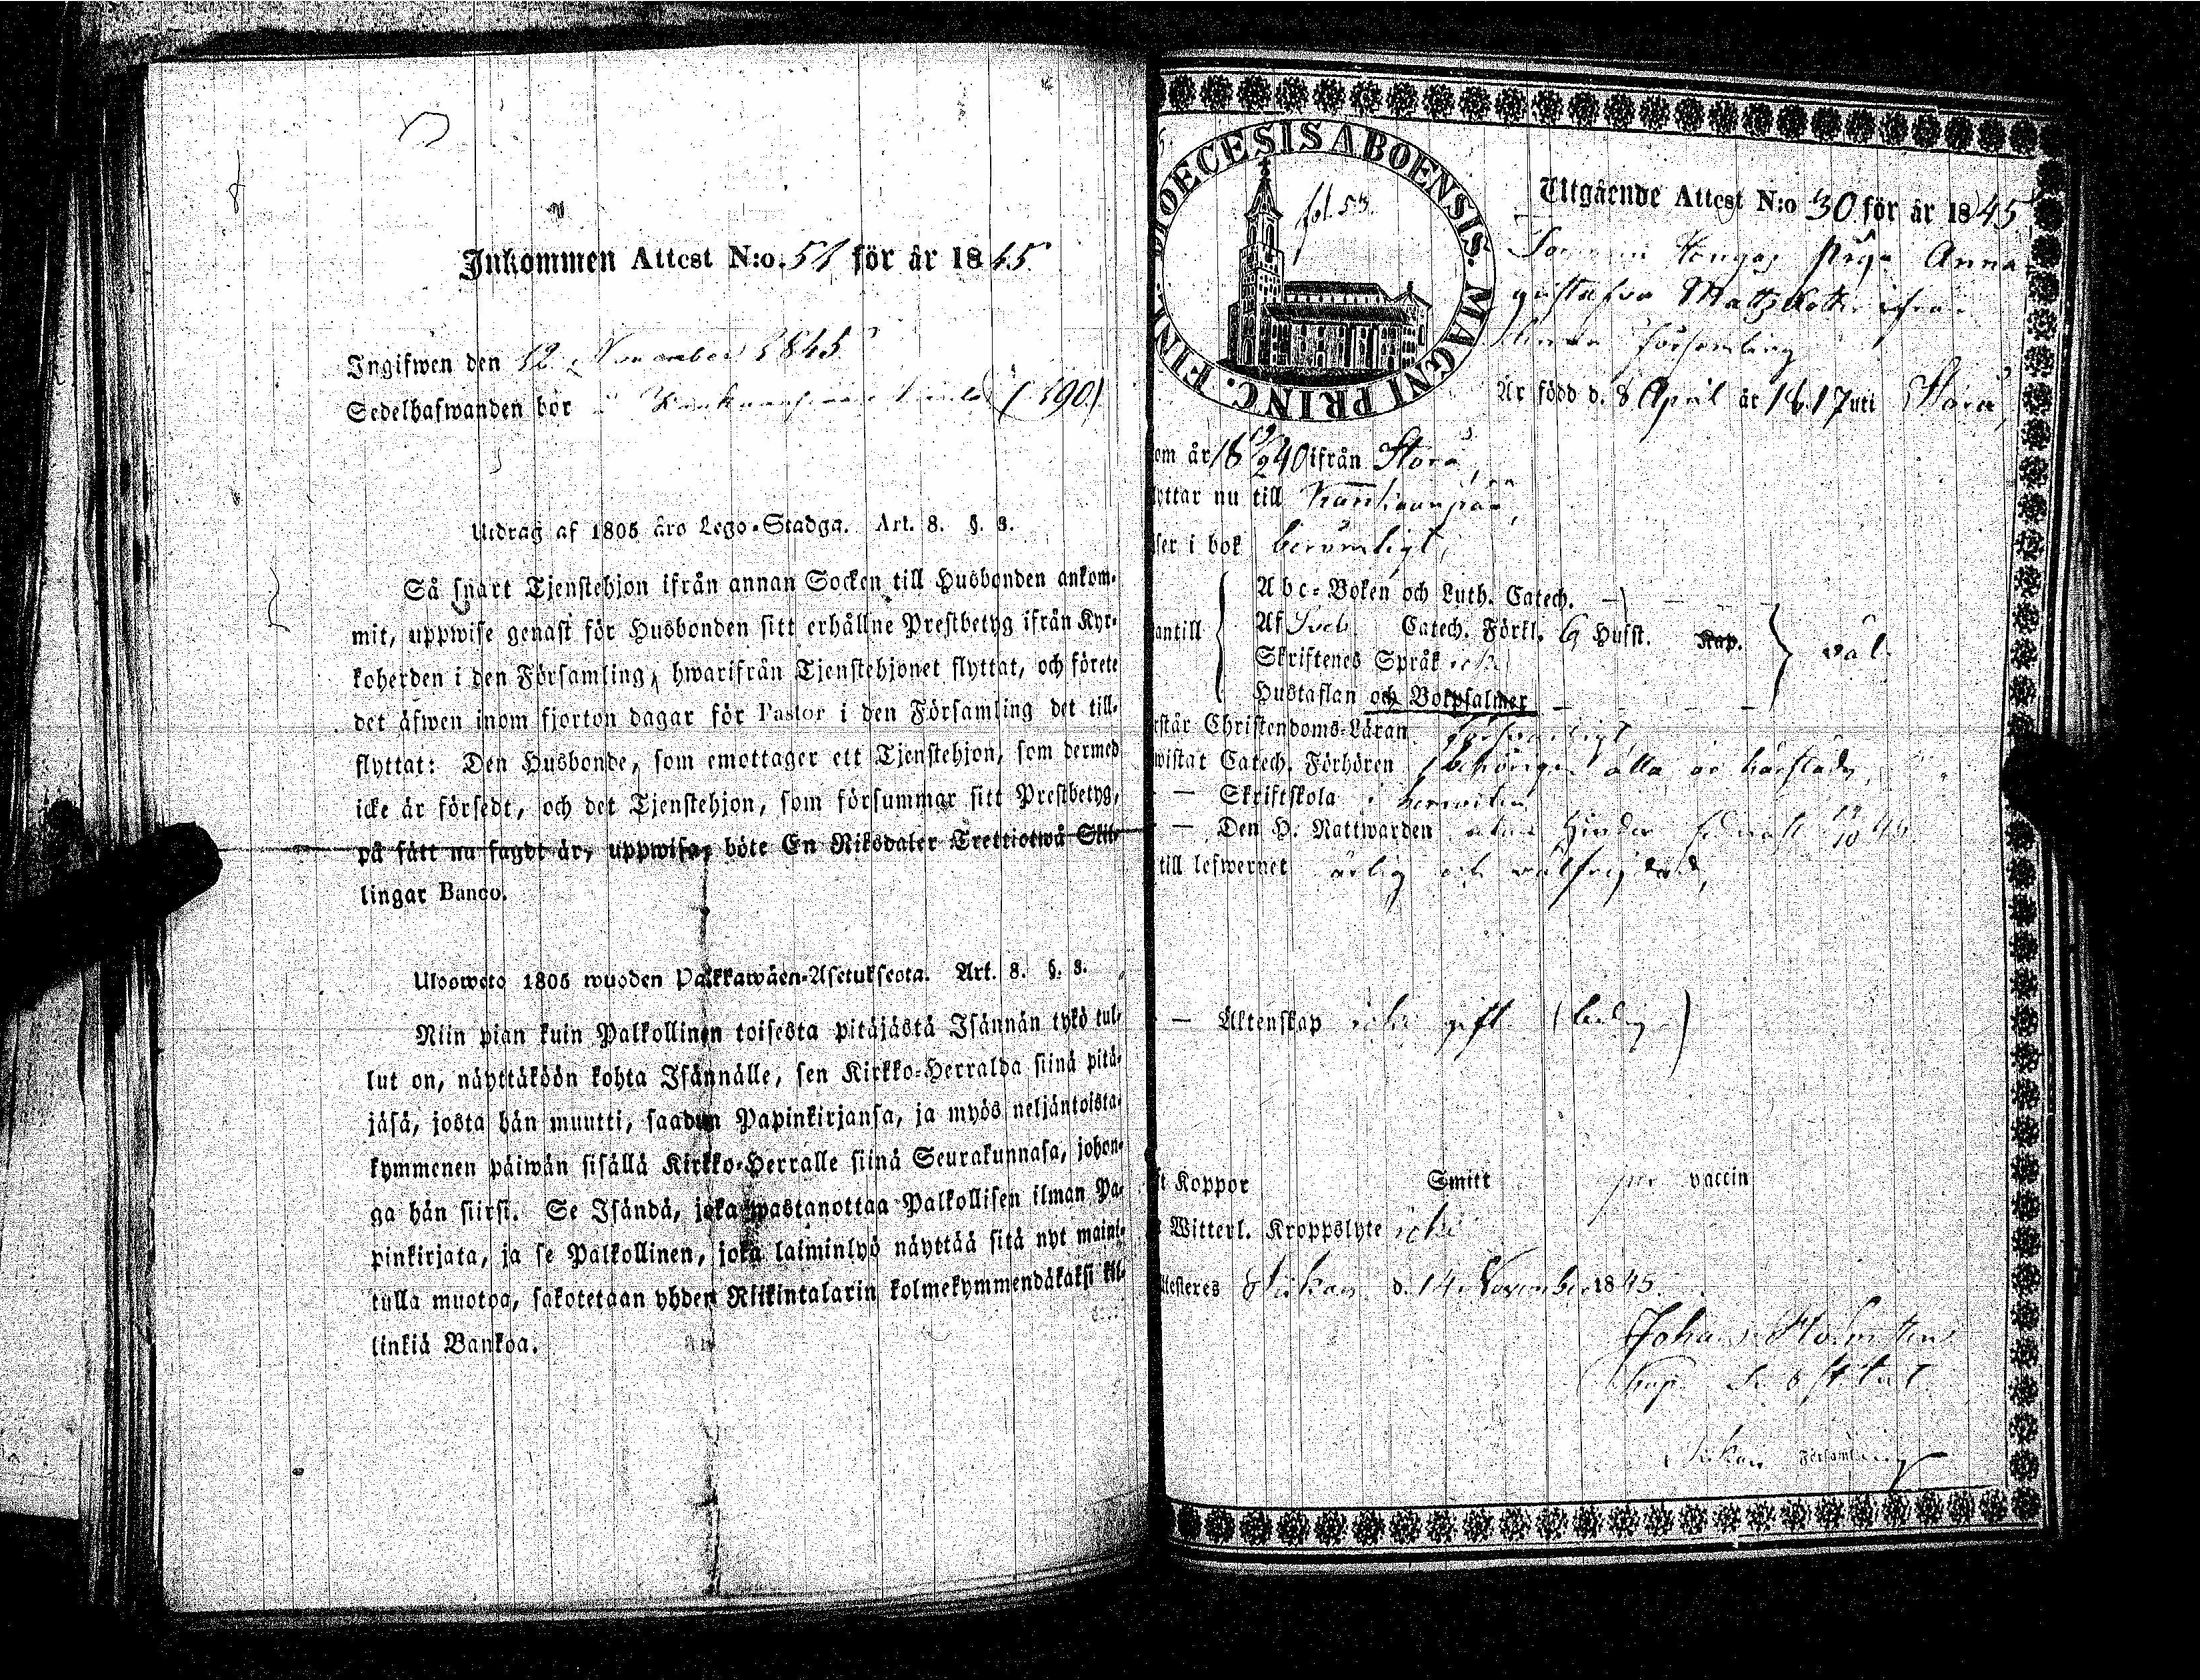 Inkommen Attest N:o. 51 för år 1845
Ingifwen den 12 November 1845
Sedelhafwanden bor (190.)
Utdrag af 1805 års Lego-Stadga. Art. 8. §. 3.
Så snart Tjenstehjon ifrån annan Socken till Husbonden ankom-
mit, uppwise genast för Husbonden sitt erhållne Prestbetyg ifrån Kyr-
koherden i den Församling, hwarifrån Tjenstehjonet flyttat, och förete
det äfwen inom fjorton dagar för Pastor i den Församling det till-
flyttat: Den Husbonde, som emottager ett Tjenstehjon, som dermed
icke är försedt, och det Tjenstehjon, som försummar sitt Prestbetyg,
på sätt nu sagdt är, uppwisa, böte En Riksdaler Trettiotwå Skil-
lingar Banco.
Uloswető 1805 wuoden Palkkawäen-Asetuksesta. Art. 8. §. 3.
Niin pian kuin Palkollinen toisesta pitäjästä Isännän tykö tul-
lut on, näyttäköön kohta Isännälle, sen Kirkko-Herralda siinä pitä-
jäsä, josta hän muutti, saadun Papinkirjansa, ja myös neljäntoista-
kymmenen päiwän sisällä Kirkko-Herralle siinä Seurakunnasa, johon-
ga hän siirsi. Se Isändä, joka wastanottaa Palkollisen ilman Pa-
pinkirjata, ja se Palkollinen, joka laiminlyö näyttää sitä nyt maini-
tulla muotoa, sakotetaan yhden Riikintalarin kolmekymmendäkaksi kil-
linkiä Bankoa.
DIOECESIS ABOENSIS. MAGNI PRINC. FINL.
fol. 53.
Utgående Attest N:o 30 för år 1845
Piga Anna
Gustafva Mattsdotter ifrån
Församling
Är född d. 8 April år 1817 uti Storå,
om år 18 19/9 40 ifrån Storå,
yttar nu till Kankaanpää,
ser i bok berömligt,
antill
Abc-Boken och Luth. Catech.
Af Sveb. Catech. Förkl. Hufst. Kap.
Skriftenes Språk icke
Hustaflan och Botpsalmer
väl
rstår Christendoms-Läran försvarligt
wistat Catech. Förhören
— Skriftskola
— Den H. Nattwarden utan hinder senast
till lefwernet ärlig och välfrejdad,
— Äktenskap icke gift (ledig)
ft Koppor Smitt per vaccin
Witterl. Kroppslyte icke
Attesteras d. 14 November 1845.
Johan
Kap.
Församling